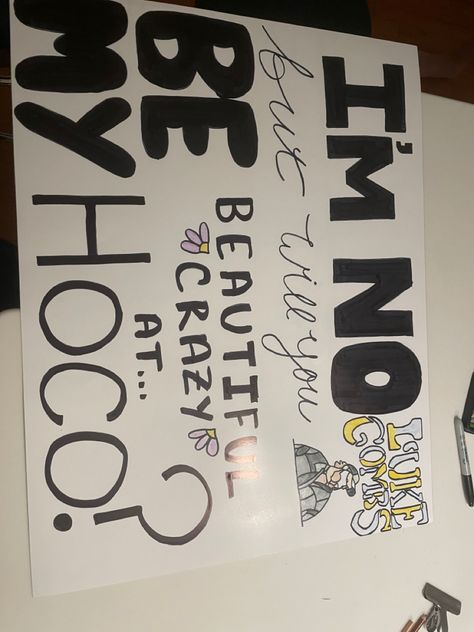 I'M NO LUKE
COMBS
but will you
BE BEAUTIFUL
CRAZY
AT...
MY HOCO?